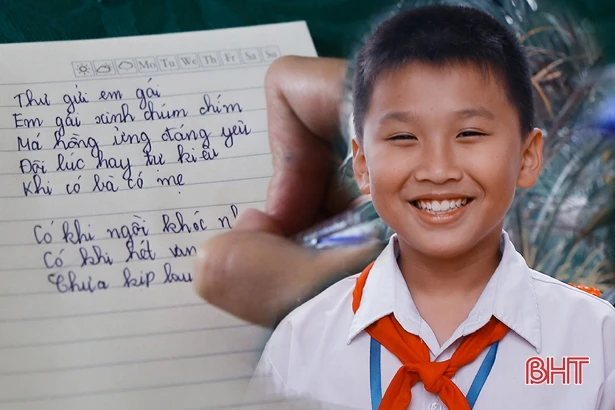 Mo Tu We Th Fr Sa Su
Thư gửi em gái
Em gái xinh chúm chím
Má hồng ửng đáng yêu
Đôi lúc hay tự kiêu
Khi có bà có mẹ
Có khi ngồi khóc
Có khi hết
Chưa kịp lau
BHT